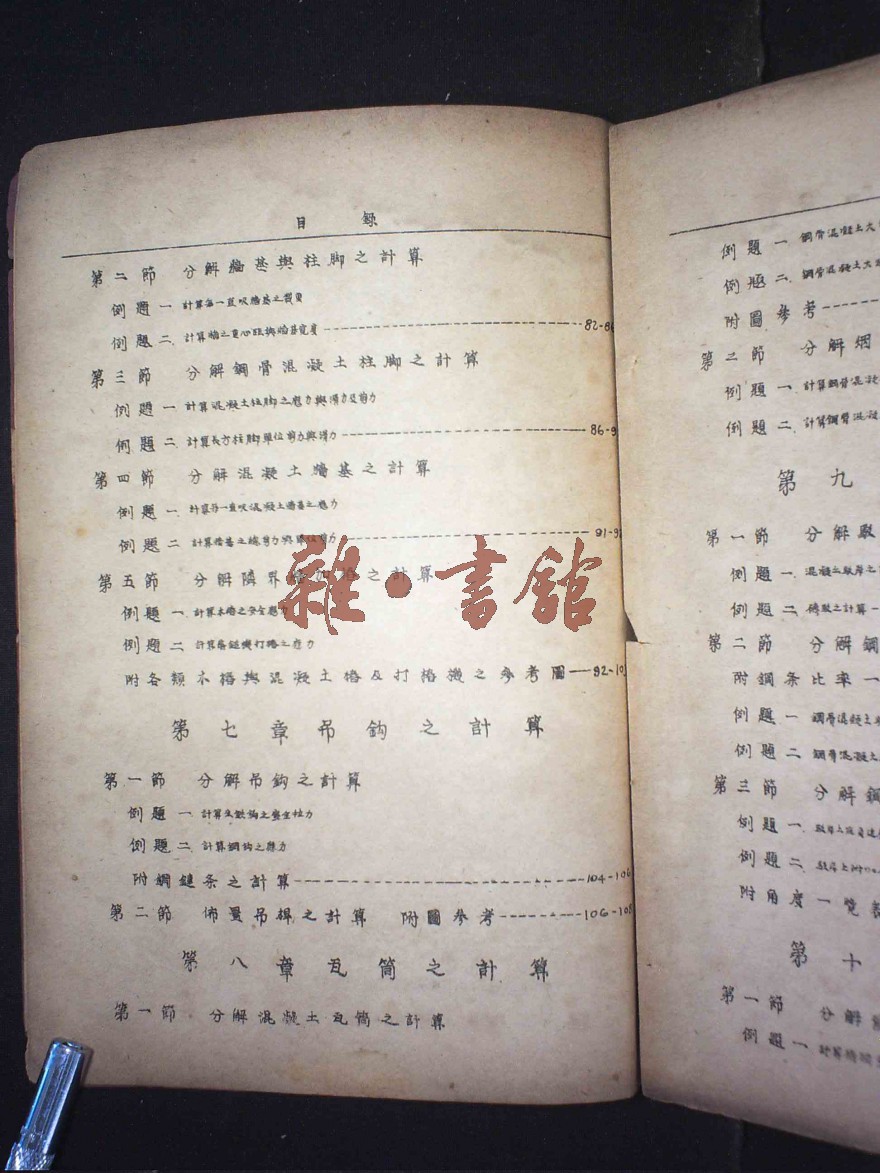 目 錄
第二節 分解牆基與柱腳之計算
例題一 計算每一直呎牆基之載重
例題二 計算牆之重心距與牆基寬度 82-86
第三節 分解鋼骨混凝土柱腳之計算
例題一 計算混凝土柱腳之應力與滑力及剪力
例題二 計算長方柱腳單位剪力與滑力 86-9
第四節 分解混凝土牆基之計算
例題一 計算每一直呎混凝土牆基之應力
例題二 計算牆基之總剪力與單位剪力 91-9
第五節 分解隣界 加樁之計算
例題一 計算木樁之安全應力
例題二 計算 打樁之應力
附各類木樁與混凝土樁及打樁機之參考圖 92-10
第七章 吊鈎之計算
第一節 分解吊鈎之計算
例題一 計算 鈎之安全拉力
例題二 計算鋼鈎之 力
附鋼鏈条之計算 104-106
第二節 佈置吊楫之計算 附圖參考 106-108
第八章 瓦筒之計算
第一節 分解混凝土瓦筒之計算
雜·書舘
例題一 鋼骨混凝土大
例題二 鋼骨混凝土大
附圖參考
第二節 分解烟
例題一 計算鋼骨混凝
例題二 計算鋼骨混凝
第九
第一節 分解駁
例題一 混凝土駁岸之
例題二 磚駁之計算
第二節 分解鋼
附鋼条比率一
例題一 鋼骨混凝土
例題二 鋼骨混凝土
第三節 分解鋼
例題一 駁岸上
例題二 駁岸上
附角度一覽表
第十
第一節 分解
例題一 計算橋